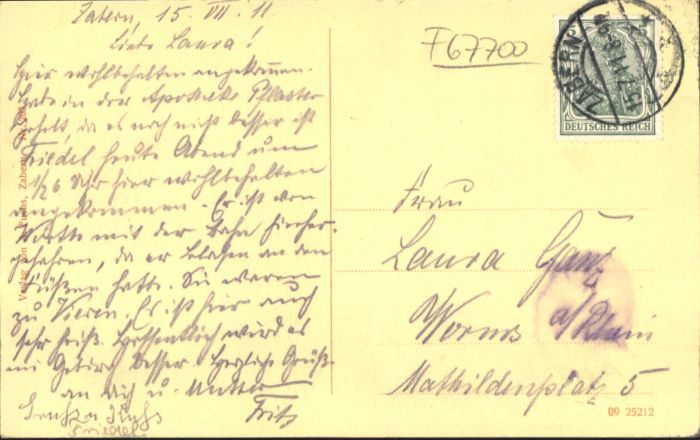 Zabern, 15. VII. 11
Liebe Laura!
Hier wohlbehalten angekommen.
Habe in der Apotheke Pflaster
geholt, da es noch nicht besser ist
Friedel heute Abend um
1/26 Uhr hier wohlbehalten
angekommen. Er ist von
mit der Bahn hierher-
gefahren, da er Blasen an den
Füßen hatte. Sie waren
zu Vieren. Es ist hier auch
sehr heiß. Hoffentlich wird es
im Gebirg besser. Herzliche Grüße
an Dich u. Mutter
Fritz
Gruß u Kuss
Friedel
F67700
ZABERN
15.7.11. 8-9
DEUTSCHES REICH
Frau
Laura Ganz
Worms a/Rhein
Mathildenplatz 5
Verlag von Fuchs, Zabern
09 25212